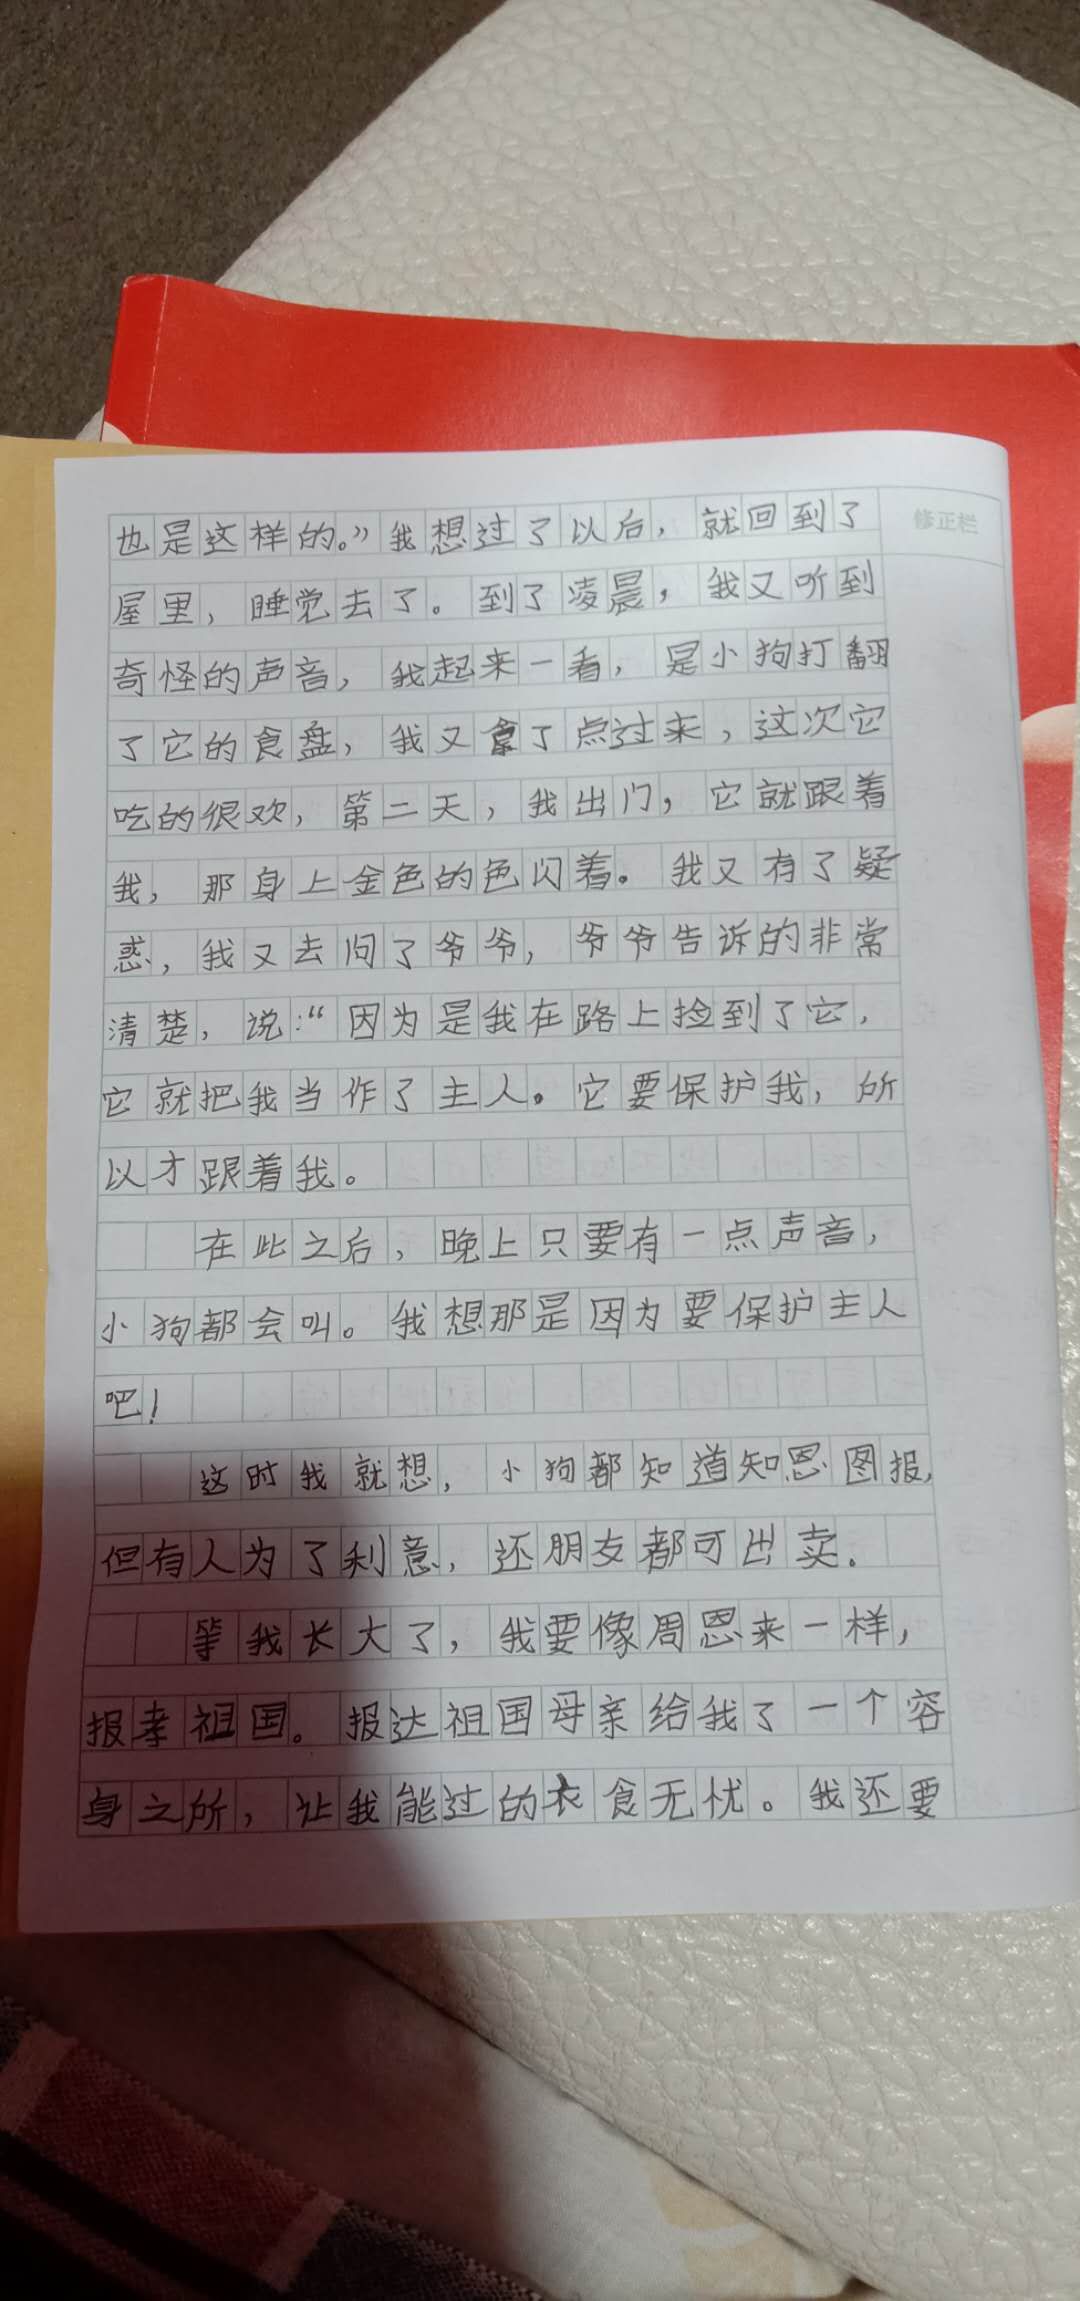 也是这样的。”我想过了以后，就回到了
修正栏
屋里，睡觉去了。到了凌晨，我又听到
奇怪的声音，我起来一看，是小狗打翻
了它的食盘，我又拿了点过来，这次它
吃的很欢，第二天，我出门，它就跟着
我，那身上金色的色闪着。我又有了疑
惑，我又去问了爷爷，爷爷告诉的非常
清楚，说：“因为是我在路上捡到了它，
它就把我当作了主人。它要保护我，所
以才跟着我。
在此之后，晚上只要有一点声音，
小狗都会叫。我想那是因为要保护主人
吧！
这时我就想，小狗都知道知恩图报，
但有人为了利意，还朋友都可出卖.
等我长大了，我要像周恩来一样，
报孝祖国。报达祖国母亲给我了一个容
身之所，让我能过的衣食无忧。我还要